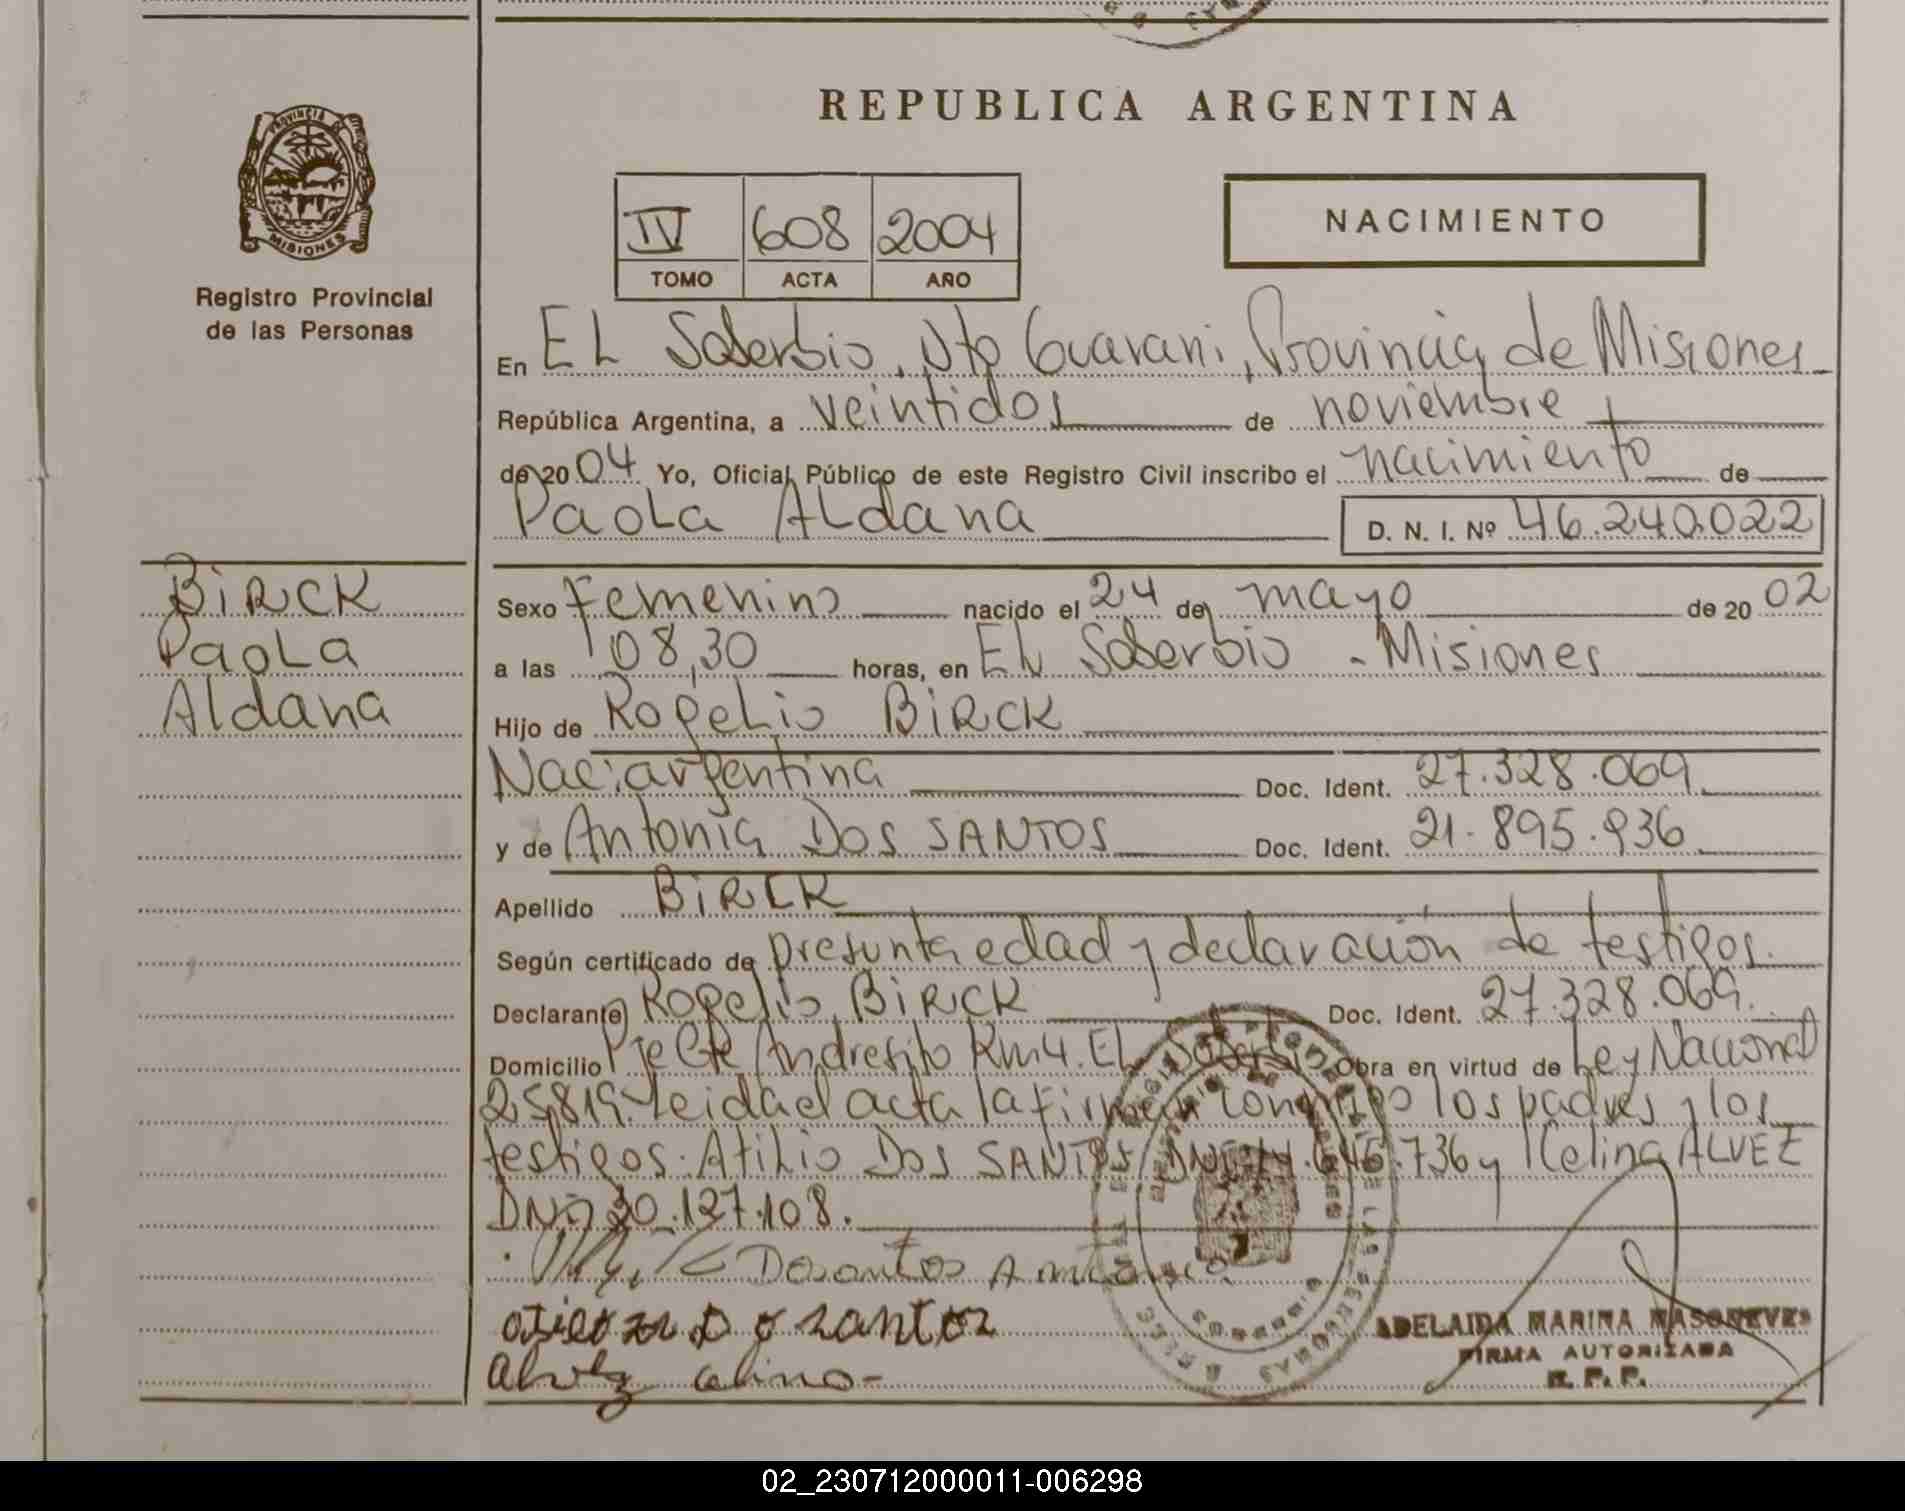 REPUBLICA ARGENTINA
PROVINCIA DE
MISIONES
Registro Provincial
de las Personas
IV 608 2004
TOMO ACTA AÑO
NACIMIENTO
En EL Soberbio, Dto Guarani, Provincia de Misiones
República Argentina, a veintidos de noviembre
de 2004 Yo, Oficial Público de este Registro Civil inscribo el nacimiento de
Paola Aldana D. N. I. Nº 46.240.022
BIRCK
Paola
Aldana
Sexo Femenino nacido el 24 de mayo de 2002
a las 08,30 horas, en EL Soberbio - Misiones
Hijo de Rogelio BIRCK
Nac: argentina Doc. Ident. 27.328.069
y de Antonia DOS SANTOS Doc. Ident. 21.895.936
Apellido BIRCK
Según certificado de presunta edad y declaración de testigos.
Declarante Rogelio BIRCK Doc. Ident. 27.328.069.
Domicilio Pje Cte Andresito Km 4. EL Soberbio Obra en virtud de Ley Nacional
25.819. Leida el acta la firman conmigo los padres y los
testigos. Atilio Dos SANTOS DNI 14.646.736 y Celina ALVEZ
DNI 30.127.108.
Dosantos Antonia
santos
Alvez celina-
ADELAIDA MARINA
FIRMA AUTORIZADA
R. P. P.
02_230712000011-006298